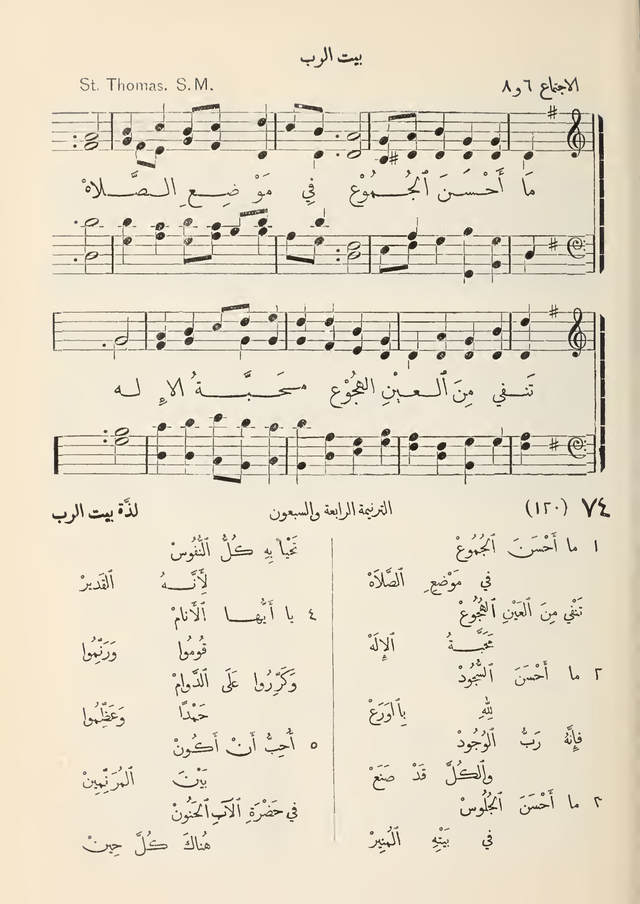 بيت الرب
الاجتماع ٦ و ٨
St. Thomas. S.M.
مَا أَحْسَنَ ٱلْجُمُوعْ فِي مَوْضِعِ ٱلـصَّـلَاهْ
تَنْفِي مِنَ ٱلْـعَـيْنِ ٱلْهُجُوْعْ مَحَـبَّـةُ الإِلـه
٧٤ (١٢٠) الترنيمة الرابعة والسبعون لذَّة بيت الرب
١ ما أَحْسَنَ ٱلجُمُوعْ
في مَوْضِعِ ٱلصَّلَاهْ
تَنْفِي مِنَ ٱلعَيْنِ ٱلهُجُوعْ
مَحَبَّةُ ٱلإِلَهْ
٢ ما أَحْسَنَ ٱلسُّجُودْ
لِلهِ بِٱلوَرَعْ
فإِنَّهُ رَبُّ ٱلوُجُودْ
وٱلكُلَّ قَدْ صَنَعْ
٢ ما أَحْسَنَ ٱلجُلُوسْ
في بَيْتِهِ ٱلمُنِيرْ
تَحْيَا بِهِ كُلُّ ٱلنُّفُوسْ
لِأَنَّـهُ ٱلقَدِيرْ
٤ يا أَيُّهـا ٱلأَنَامْ
قُومُوا وَرَنِّمُوا
وَكَرِّرُوا عَلَى ٱلدَّوَامْ
حَمْدًا وَعَظِّمُوا
٥ أُحِبُّ أَنْ أَكُونْ
بَيْنَ ٱلمُرَنِّمِينْ
في حَضْرَةِ ٱلآبِ ٱلحَنُونْ
هُنَاكَ كُلَّ حِينْ